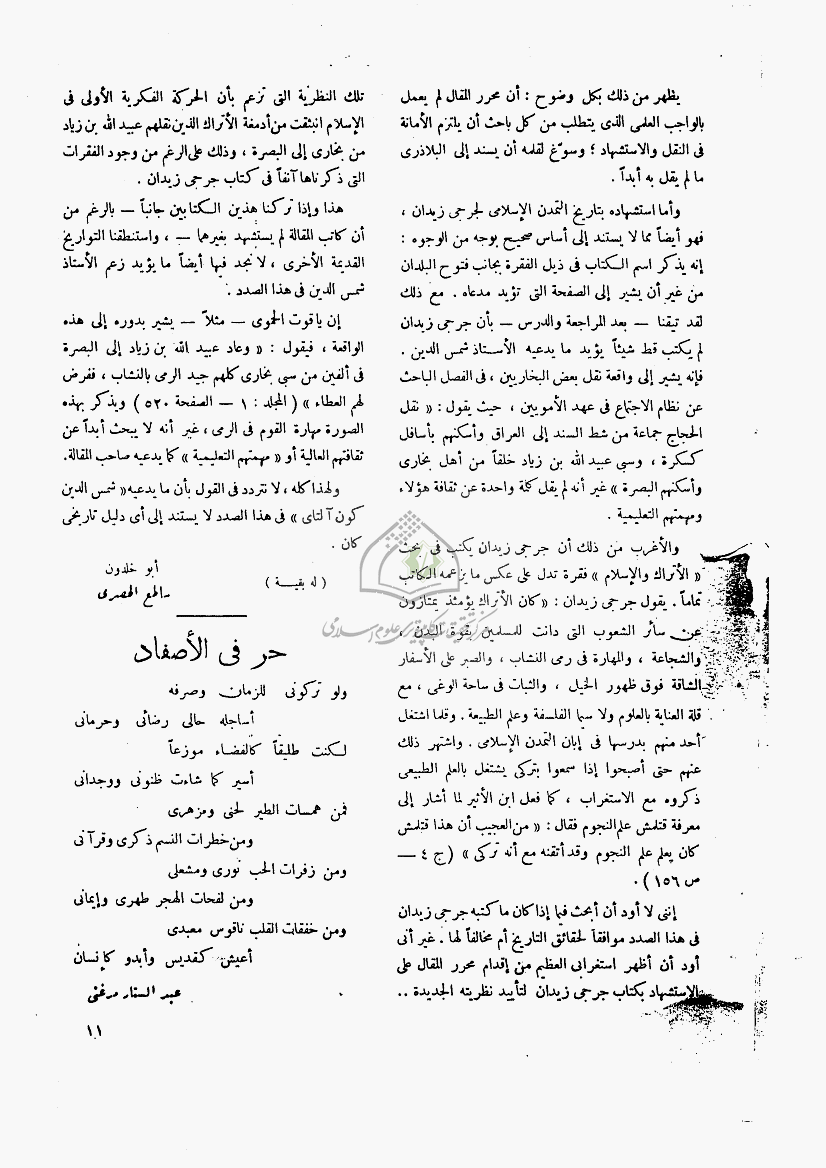 يظهر من ذلك بكل وضوح : أن محرر المقال لم يعمل
بالواجب العلمى الذى يتطلب من كل باحث أن يلتزم الأمانة
فى النقل والاستشهاد ؛ وسوّغ لقلمه أن يسند إلى البلاذرى
ما لم يقل به أبداً .
وأما استشهاده بتاريخ التمدن الإسلامى لجرجى زيدان ،
فهو أيضاً مما لا يستند إلى أساس صحيح بوجه من الوجوه :
إنه يذكر اسم الكتاب فى ذيل الفقرة بجانب فتوح البلدان
من غير أن يشير إلى الصفحة التى تؤيد مدعاه . مع ذلك
لقد تيقنا — بعد المراجعة والدرس — بأن جرجى زيدان
لم يكتب قط شيئاً يؤيد ما يدعيه الأستاذ شمس الدين .
فإنه يشير إلى واقعة نقل بعض البخاريين ، فى الفصل الباحث
عن نظام الاجتماع فى عهد الأمويين ، حيث يقول : « نقل
الحجاج جماعة من شط السند إلى العراق وأسكنهم بأسافل
كسكرة ، وسبى عبيد الله بن زياد خلقاً من أهل بخارى
وأسكنهم البصرة » غير أنه لم يقل كلمة واحدة عن ثقافة هؤلاء
ومهمتهم التعليمية .
والأغرب من ذلك أن جرجى زيدان يكتب فى بحث
« الأتراك والإسلام » فقرة تدل على عكس ما يزعمه الكاتب
تماماً . يقول جرجى زيدان : « كان الأتراك يؤمئذ يمتازون
عن سائر الشعوب التى دانت للمسلمين بقوة البدن ،
والشجاعة ، والمهارة فى رمى النشاب ، والصبر على الأسفار
الشاقة فوق ظهور الخيل ، والثبات فى ساحة الوغى ، مع
قلة العناية بالعلوم ولا سيما الفلسفة وعلم الطبيعة . وقلما اشتغل
أحد منهم بدرسها فى إبان التمدن الإسلامى . واشتهر ذلك
عنهم حتى أصبحوا إذا سمعوا بتركى يشتغل بالعلم الطبيعى
ذكروه مع الاستغراب ، كما فعل ابن الأثير لما أشار إلى
معرفة قتلمش علم النجوم فقال : « من العجيب أن هذا قتلمش
كان يعلم علم النجوم وقد أتقنه مع أنه تركى » (ج ٤ —
ص ١٥٦) .
إننى لا أود أن أبحث فيما إذا كان ما كتبه جرجى زيدان
فى هذا الصدد موافقاً لحقائق التاريخ أم مخالفاً لها . غير أنى
أود أن أظهر استغرابى العظيم من إقدام محرر المقال على
الاستشهاد بكتاب جرجى زيدان لتأييد نظريته الجديدة ..
تلك النظرية التى تزعم بأن الحركة الفكرية الأولى فى
الإسلام انبثقت من أدمغة الأتراك الذين نقلهم عبيد الله بن زياد
من بخارى إلى البصرة ، وذلك على الرغم من وجود الفقرات
التى ذكرناها آنفاً فى كتاب جرجى زيدان .
هذا وإذا تركنا هذين الكتابين جانباً — بالرغم من
أن كاتب المقالة لم يستشهد بغيرها — ، واستنطقنا التواريخ
القديمة الأخرى ، لا نجد فيها أيضاً ما يؤيد زعم الأستاذ
شمس الدين فى هذا الصدد .
إن ياقوت الحموى — مثلاً — يشير بدوره إلى هذه
الواقعة ، فيقول : « وعاد عبيد الله بن زياد إلى البصرة
فى ألفين من سبى بخارى كلهم جيد الرمى بالنشاب ، ففرض
لهم العطاء » ( المجلد : ١ — الصفحة ٥٢٠ ) ويذكر بهذه
الصورة مهارة القوم فى الرمى ، غير أنه لا يبحث أبداً عن
ثقافتهم العالية أو « مهمتهم التعليمية » كما يدعيه صاحب المقالة.
ولهذا كله ، لا نتردد فى القول بأن ما يدعيه « شمس الدين
كون آلتاى » فى هذا الصدد لا يستند إلى أى دليل تاريخى
كان .
أبو خلدون
( له بقية )
ساطع الحصرى
حر فى الأصفاد
ولو تركونى للزمان وصرفه
أساجله حالى رضائى وحرمانى
لكنت طليقاً كالفضاء موزعاً
أسير كما شاءت ظنونى ووجدانى
فمن همسات الطير لحنى ومزهرى
ومن خطرات النسم ذكرى وقرآنى
ومن زفرات الحب نورى ومشعلى
ومن لفحات الهجر طهرى وإيمانى
ومن خفقات القلب ناقوس معبدى
أعيش كقديس وأبدو كإنسان
عبد الستار مرغنى
١١